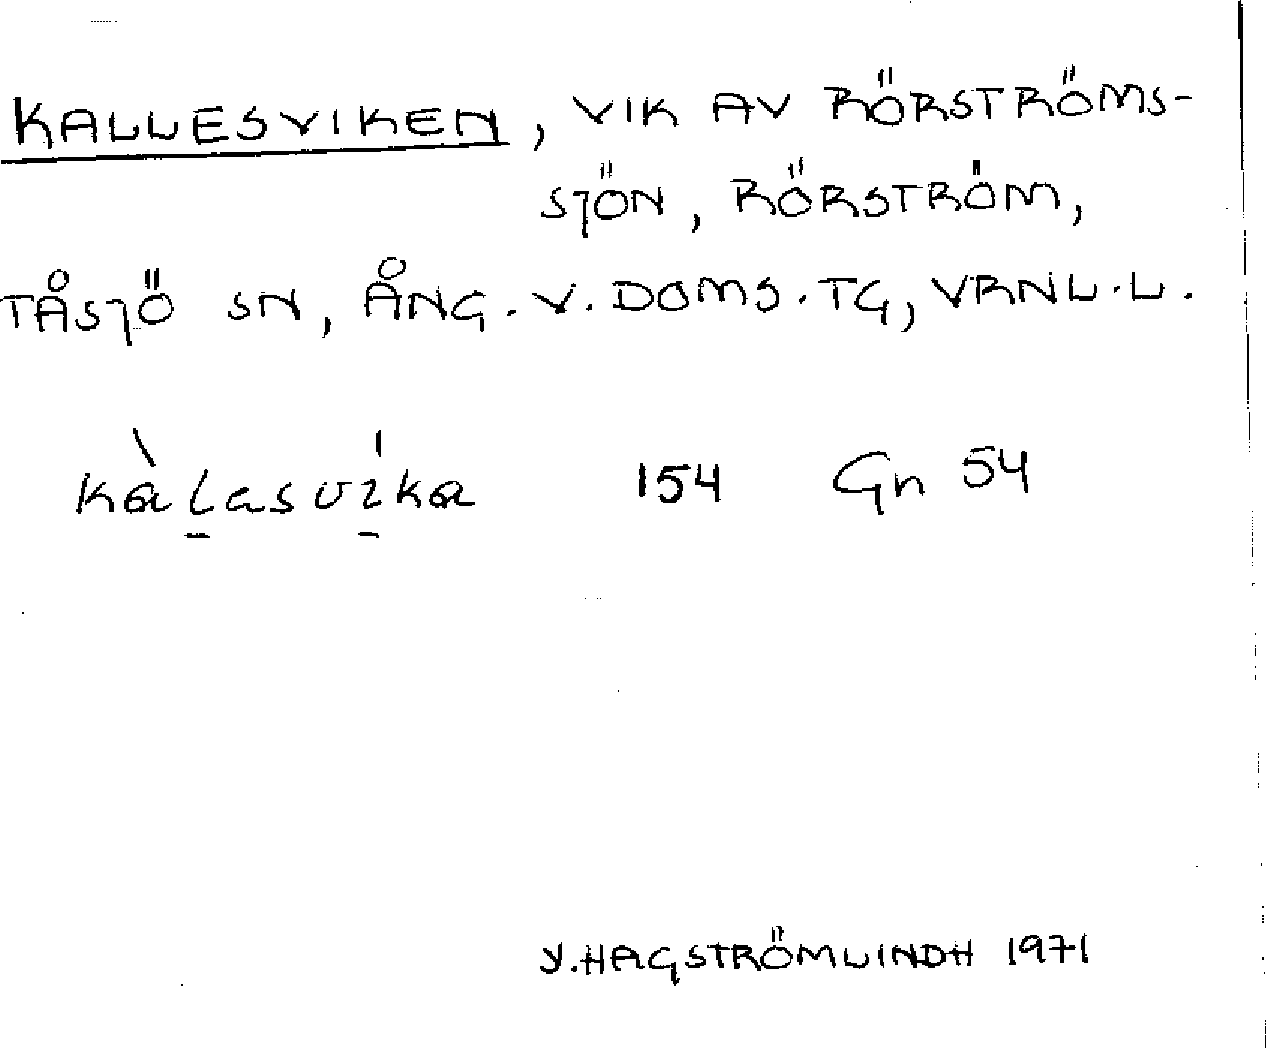 KALLESVIKEN, VIK AV RÖRSTRÖMS-
SJÖN, RÖRSTRÖM,
TÅSJÖ SN, ÅNG. V. DOMS. TG, VRNL. L.
kàlasvíka 154 Gn 54
Y. HAGSTRÖMLINDH 1971